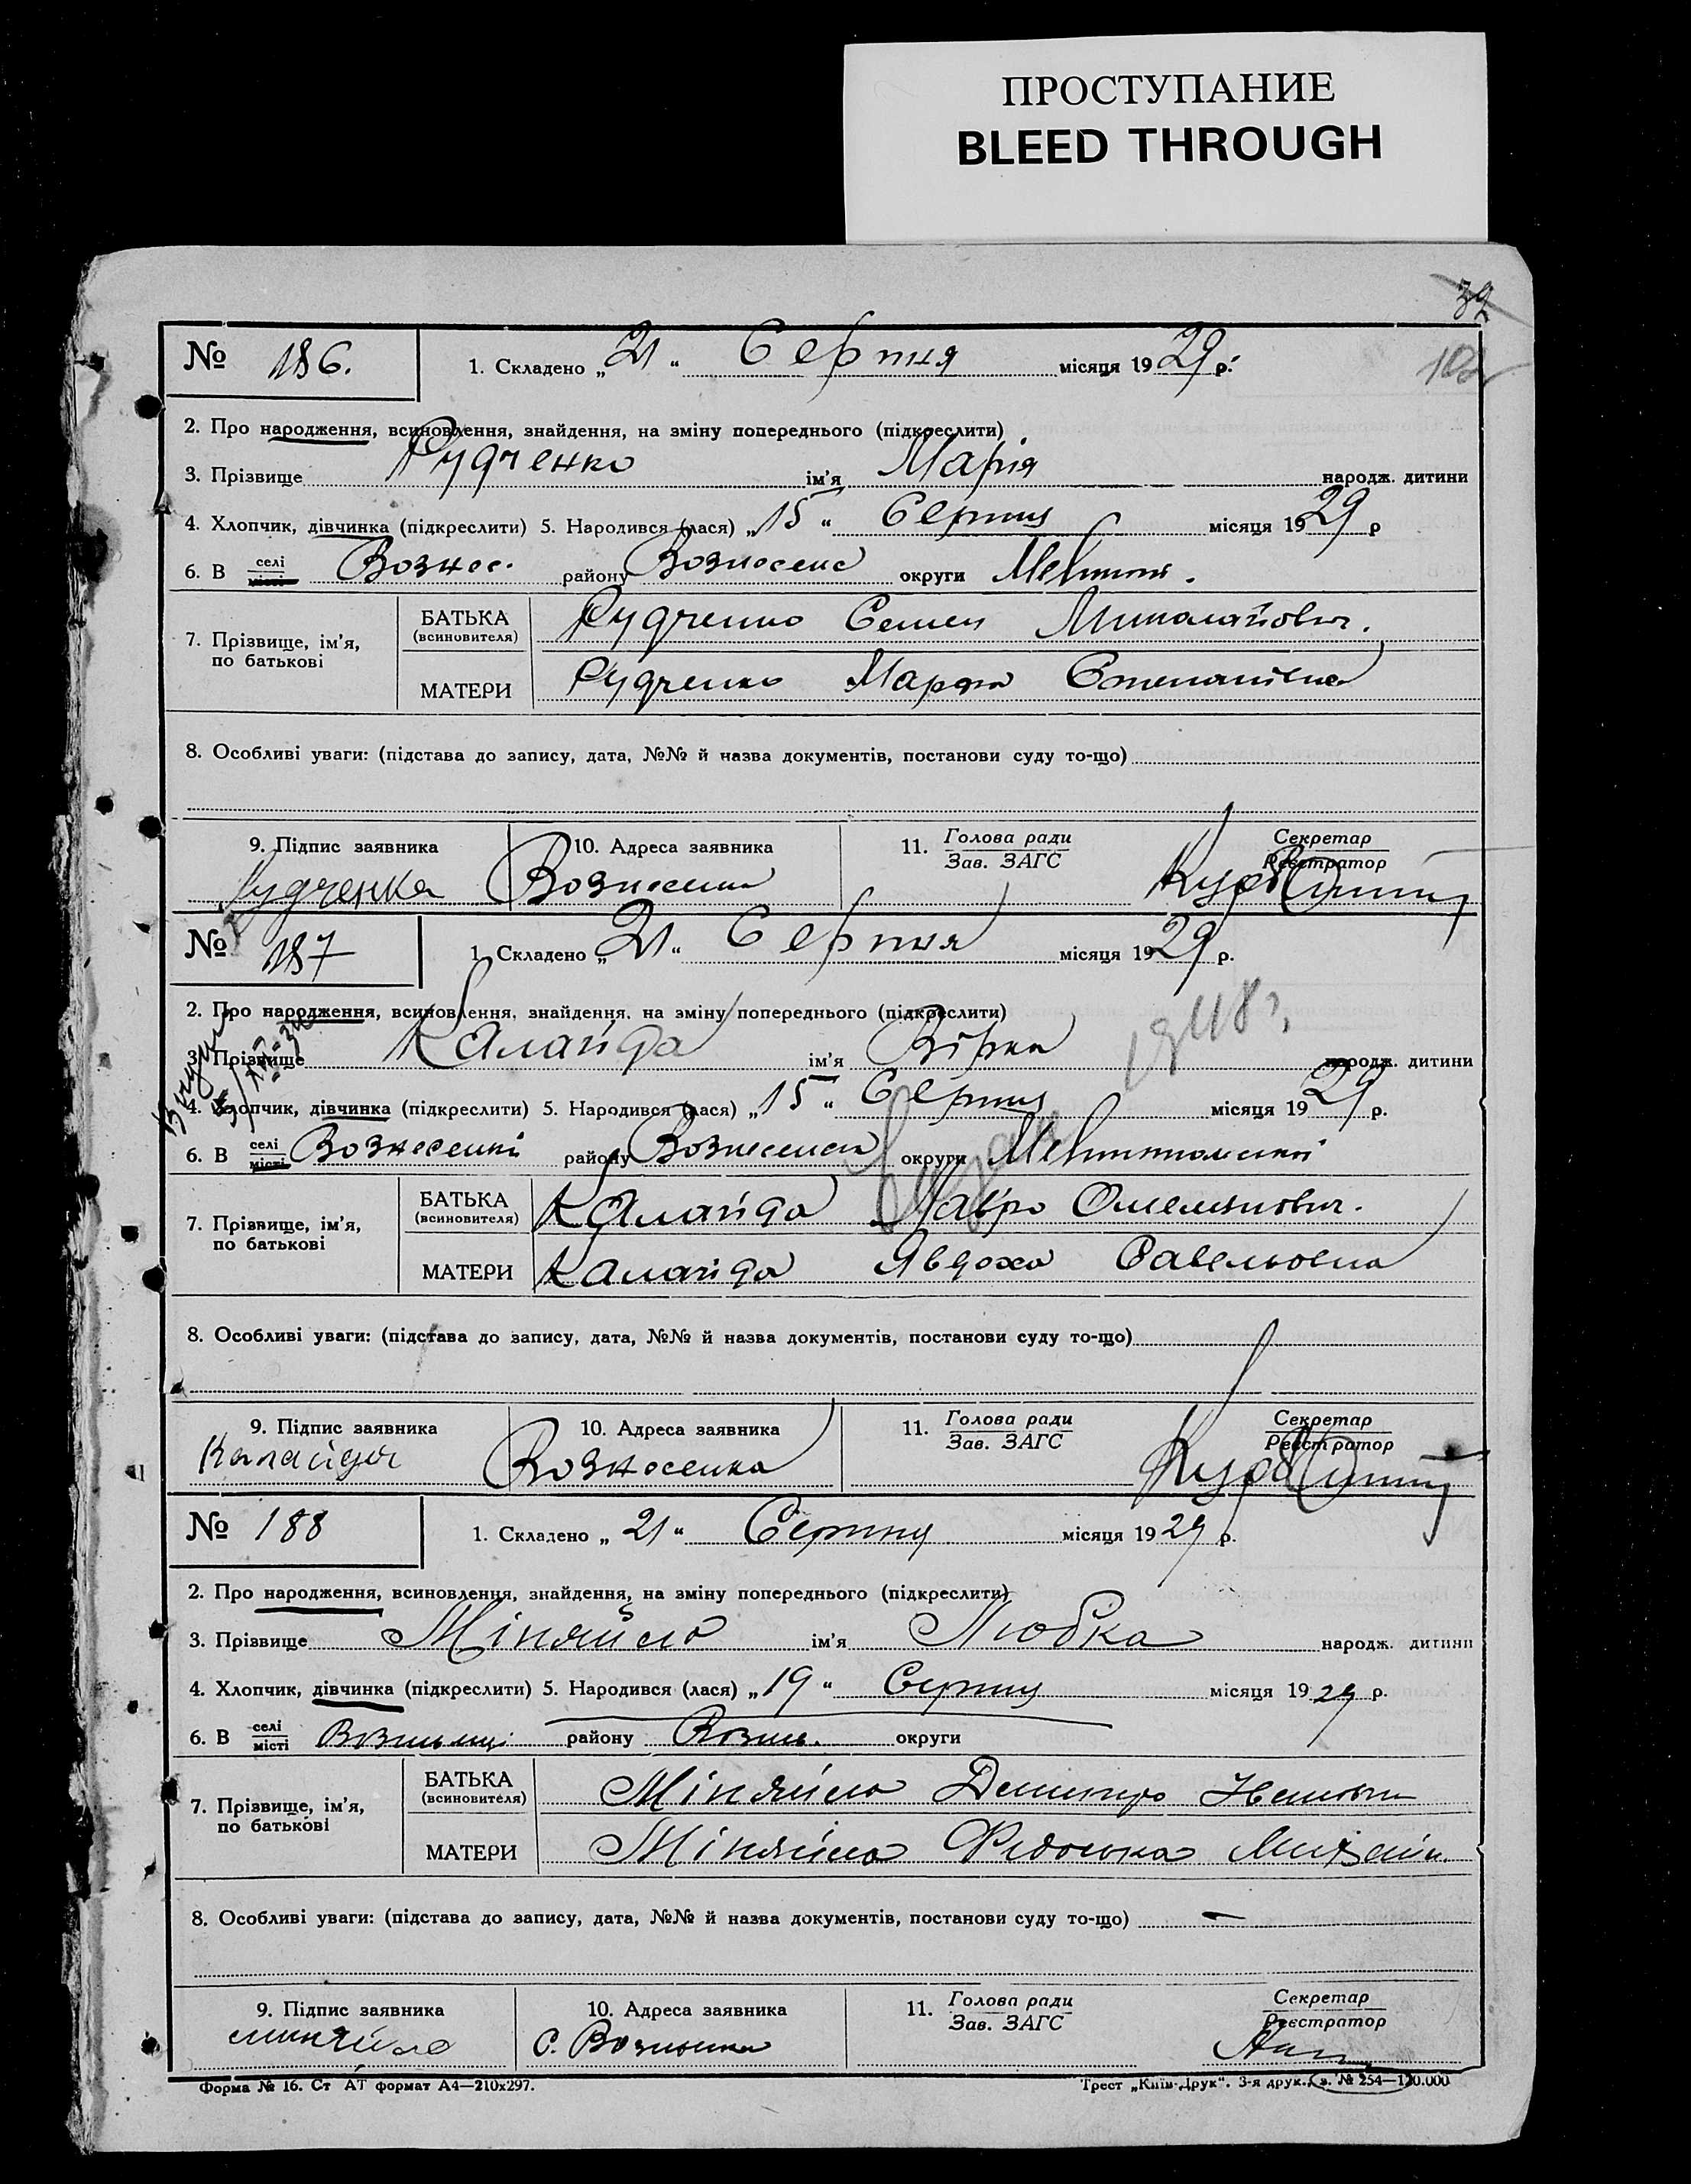 ПРОСТУПАНИЕ
BLEED THROUGH
32
102
№ 186. 1. Складено „21“ Серпня місяця 1929 р.
2. Про народження, всиновлення, знайдення, на зміну попереднього (підкреслити)
3. Прізвище Рудченко ім'я Марія народж. дитини
4. Хлопчик, дівчинка (підкреслити) 5. Народився (лася) „15“ Серпня місяця 1929 р
6. В селі місті Вознес. району Вознесенс округи Мелітоп.
БАТЬКА Рудченко Семен Миколайович.
7. Прізвище, ім'я, (всиновителя)
по батькові
МАТЕРИ Рудченко Марфа Степанівна
8. Особливі уваги: (підстава до запису, дата, №№ й назва документів, постанови суду то-що)
9. Підпис заявника 10. Адреса заявника 11. Голова ради Секретар
Зав. ЗАГС Реєстратор
Рудченка Вознесенка
№ 187 1. Складено „21“ Серпня місяця 1929 р.
2. Про народження, всиновлення, знайдення, на зміну попереднього (підкреслити)
3. Прізвище Калайда ім'я Вірка народж. дитини
1948 г.
4. Хлопчик, дівчинка (підкреслити) 5. Народився (лася) „15“ Серпня місяця 1929 р.
6. В селі місті Вознесенкі району Вознесенськ округи Мелитопольскій
БАТЬКА Калайда Лавро Омелянович.
7. Прізвище, ім'я, (всиновителя)
по батькові
МАТЕРИ Калайда Явдоха Савельовна
8. Особливі уваги: (підстава до запису, дата, №№ й назва документів, постанови суду то-що)
9. Підпис заявника 10. Адреса заявника 11. Голова ради Секретар
Зав. ЗАГС Реєстратор
Калайда Вознесенка
№ 188 1. Складено „21“ Серпня місяця 1929 р.
2. Про народження, всиновлення, знайдення, на зміну попереднього (підкреслити)
3. Прізвище Міняйло ім'я Любка народж. дитини
4. Хлопчик, дівчинка (підкреслити) 5. Народився (лася) „19“ Серпня місяця 1929 р.
6. В селі місті району Вознес. округи
БАТЬКА Міняйло Дмитро Іванович
7. Прізвище, ім'я, (всиновителя)
по батькові
МАТЕРИ Міняйло Федоська Михайл.
8. Особливі уваги: (підстава до запису, дата, №№ й назва документів, постанови суду то-що) —
9. Підпис заявника 10. Адреса заявника 11. Голова ради Секретар
Зав. ЗАГС Реєстратор
Миняйло С. Вознесенка
Форма № 16. Ст АТ формат А4—210х297. Трест „Київ-Друк“. 3-я друк., з. № 254—120.000